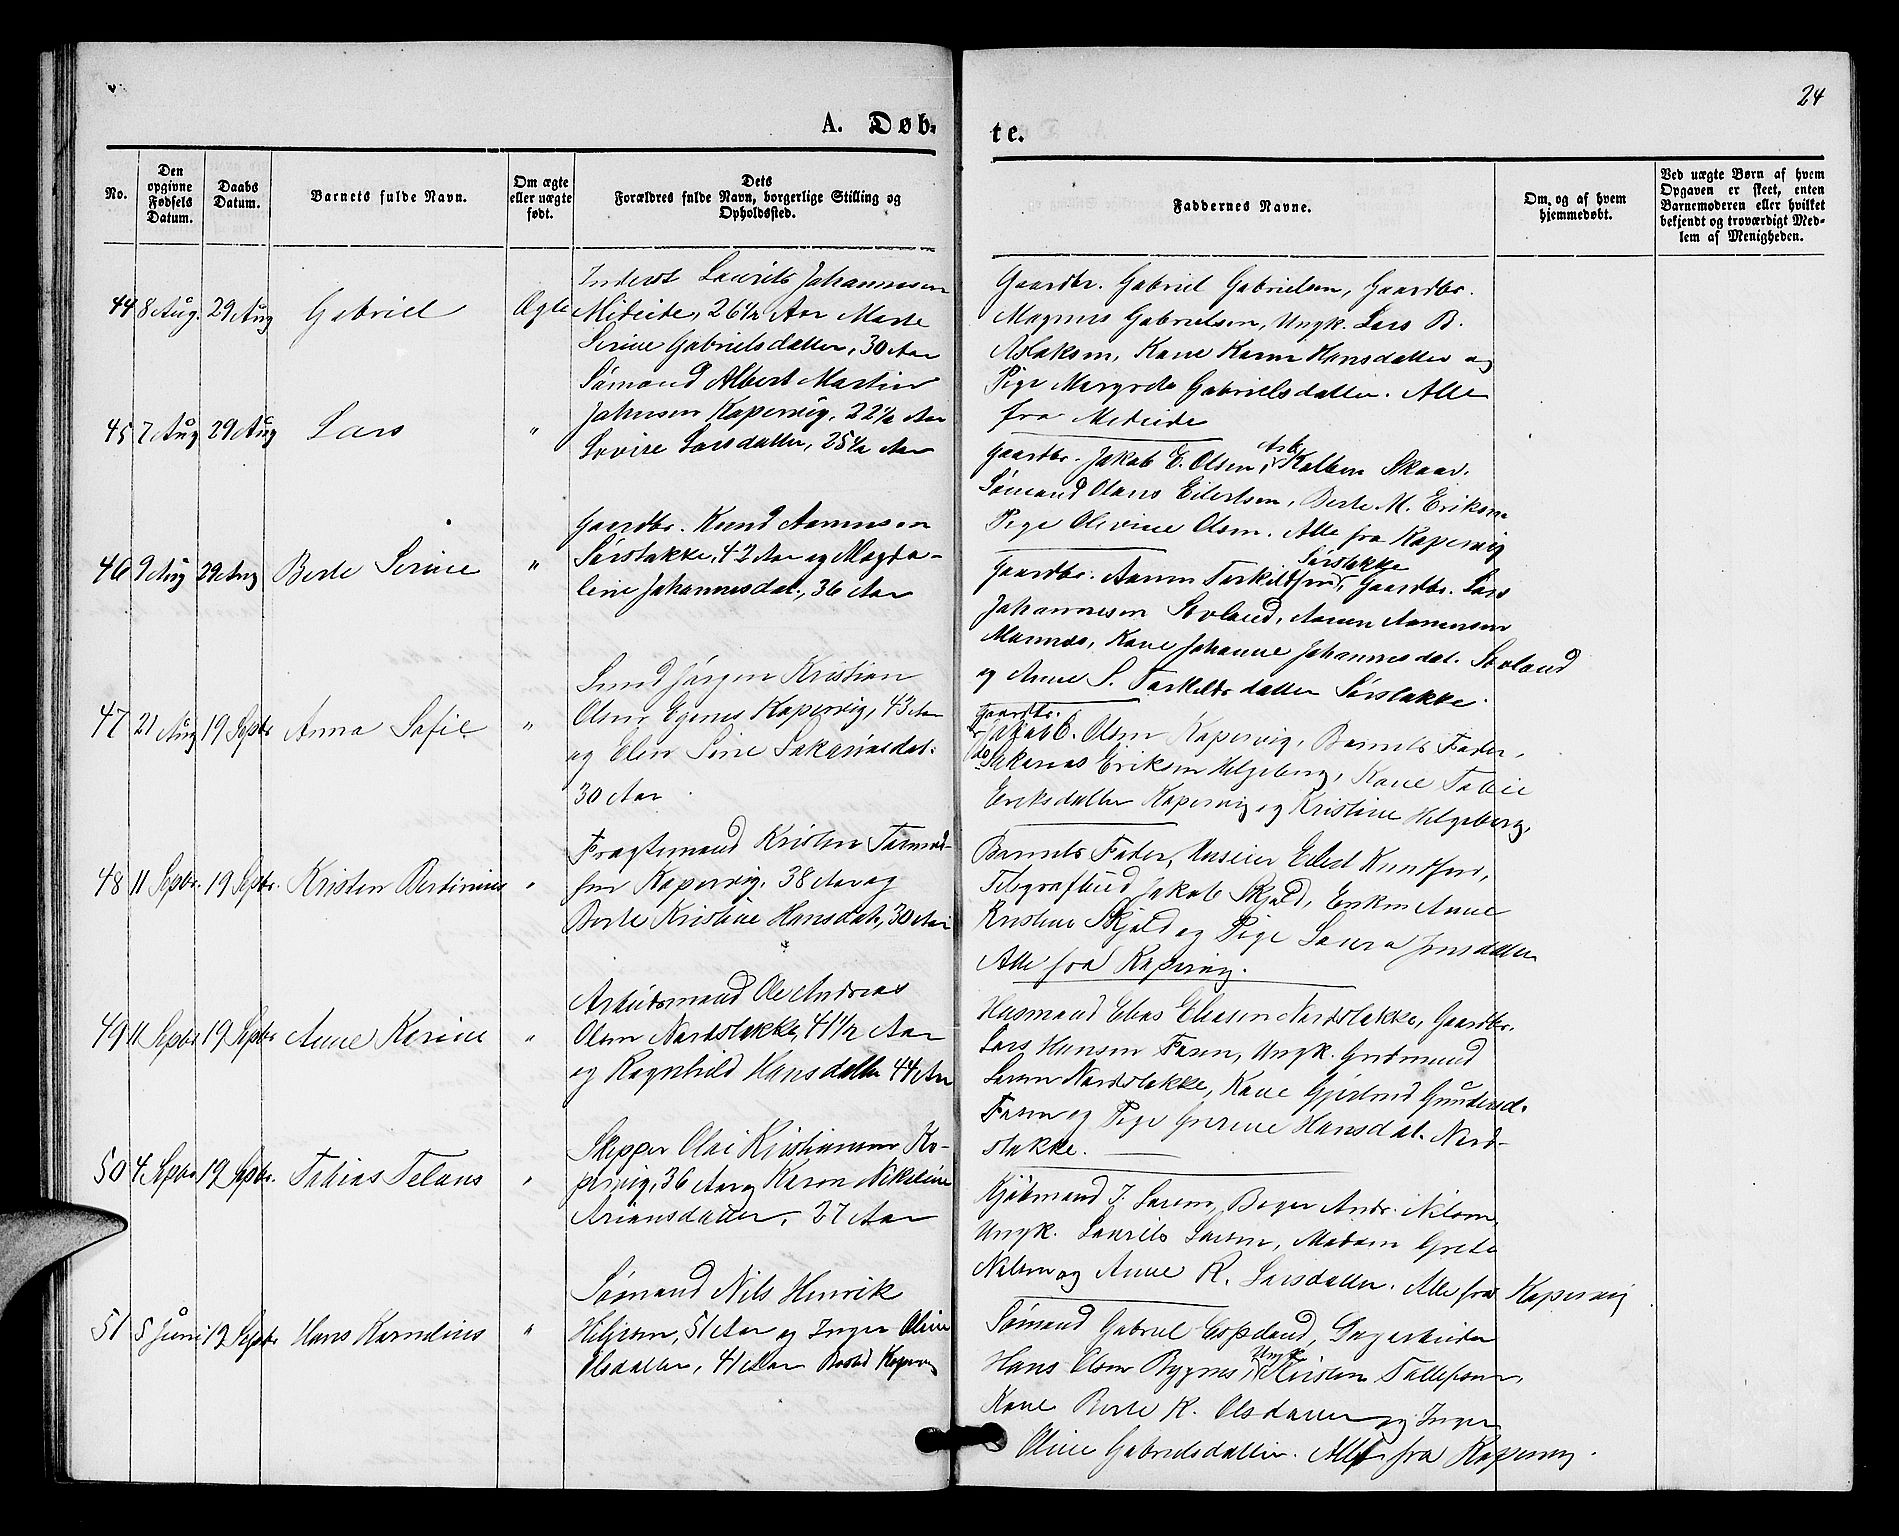 24
A. Døb-
te.
No.
Den opgivne Fødsels Datum.
Daabs Datum.
Barnets fulde Navn.
Om ægte eller uægte født.
Dets Forældres fulde Navn, borgerlige Stilling og Opholdssted.
Faddernes Navne.
Om, og af hvem hjemmedøbt.
Ved uægte Børn af hvem Opgaven er skeet, enten Barnemoderen eller hvilket bekjendt og troværdigt Medlem af Menigheden.
44 8 Aug. 29 Aug Gabriel Ægte
Inderst Laurits Johannesen
Mideide, 26 1/2 Aar Marte
Serine Gabrielsdatter, 30 Aar
Gaardbr. Gabriel Gabrielsen, Gaardbr.
Magnus Gabrielsen, Ungk. Lars B.
Aslaksen, Kone Karen Hansdatter og
Pige Margrete Gabrielsdatter. Alle
fra Medeide
45 7 Aug 29 Aug Lars "
Sømand Albert Martin
Johnsen Kopervig, 22 1/2 Aar
Lovise Larsdatter, 25 1/2 Aar
Gaardbr. Jakob E. Olsen, Arb. Kolben Skaar.
Sømand Olaus Eilertsen, Berte M. Eriksen
Pige Olevine Olsen. Alle fra Kopervig
46 9 Aug 29 Aug Berte Serine "
Gaardbr. Knud Aamunsen
Sørstokke, 42 Aar og Magda-
lene Johannesdat., 36 Aar
Gaardbr. Aamun Torkildsen Sørstokke, Gaardbr. Lars
Johannesen Stoland, Aamun Aamunsen
Mannes, Kone Johanne Johannesdat. Stoland
og Anne S. Torkildsdatter Sørstokke.
47 21 Aug 19 Septbr Anna Sofie "
Smed Jørgen Kristian
Olsen Egenes Kopervig, 43 Aar
og Elen Sine Sakariasdat.
30 Aar
Gaardbr. Jakob E. Olsen Kopervig, Barnets Fader,
Sakarias Eriksen Helgeberg, Kone Tobie
Eriksdatter Kopervig og Kristine Helgeberg.
48 11 Septbr. 19 Septbr. Kristen Bertinius "
Fragtemand Kristen Tormod-
sen Kopervig, 38 Aar og
Berte Kristine Hansdat., 30 Aar
Barnets Fader, Huseier Eilert Knudsen,
Telegrafbud Jakob Skjold, Enken Anne
Kristine Skjold og Pige Laura Jensdatter
Alle fra Kopervig.
49 11 Septbr 19 Septbr Anne Karine "
Arbeidsmand Ole Andreas
Olsen Nordstokke, 41 1/2 Aar
og Ragnhild Hansdatter 44 Aar
Husmand Elias Eliasen Nordstokke, Gaardbr.
Lars Hansen Fosen, Ungk. Gudmund
Larsen Nordstokke, Kone Gjertrud Gundersd.
Fosen og Pige Hansdat. Nord-
stokke.
50 4 Septbr 19 Septbr. Tobias Telaus "
Skipper Olai Kristiansen Ko-
pervig, 36 Aar og Karen Nikoline
Ariansdatter, 27 Aar
Kjøbmand J. Larsen, Bager Andr. Nilsen,
Ungk. Laurits Larsen, Madam Grete
Nilsen og Anne K. Larsdatter. Alle fra Kopervig
51 5 Juni 19 Septbr Hans Kornelius "
Sømand Nils Henrik
Hilgesen, 51 Aar og Inger Oline
Olsdatter, 41 Aar Bosted Kopervig
Sømand Gabriel Espeland, Dagarbeider
Hans Olsen Bygnes, Ungk. Kirsten Tollefsen,
Kone Berte K. Olsdatter og Inger
Oline Gabrielsdatter. Alle fra Kopervig.